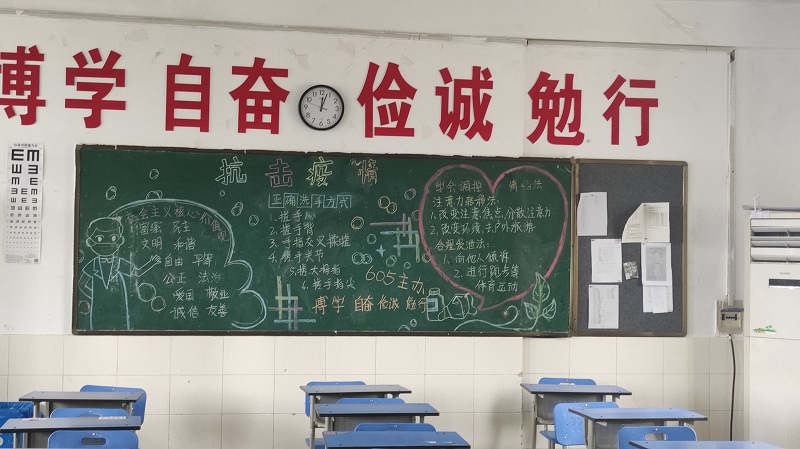 博学 自奋 俭诚 勉行
抗击疫情
社会主义核心价值观
富强 民主
文明 和谐
自由 平等
公正 法治
爱国 敬业
诚信 友善
正确洗手方式
1.搓手心
2.搓手背
3.手指交叉揉搓
4.搓手关节
5.搓大拇指
6.搓手指尖
605主办
博学 自奋 俭诚 勉行
学会调控 情绪法
注意力转移法:
1.改变注意焦点,分散注意力
2.改变环境,去户外旅游
合理发泄法:
1.向他人倾诉
2.进行跑步等
体育运动